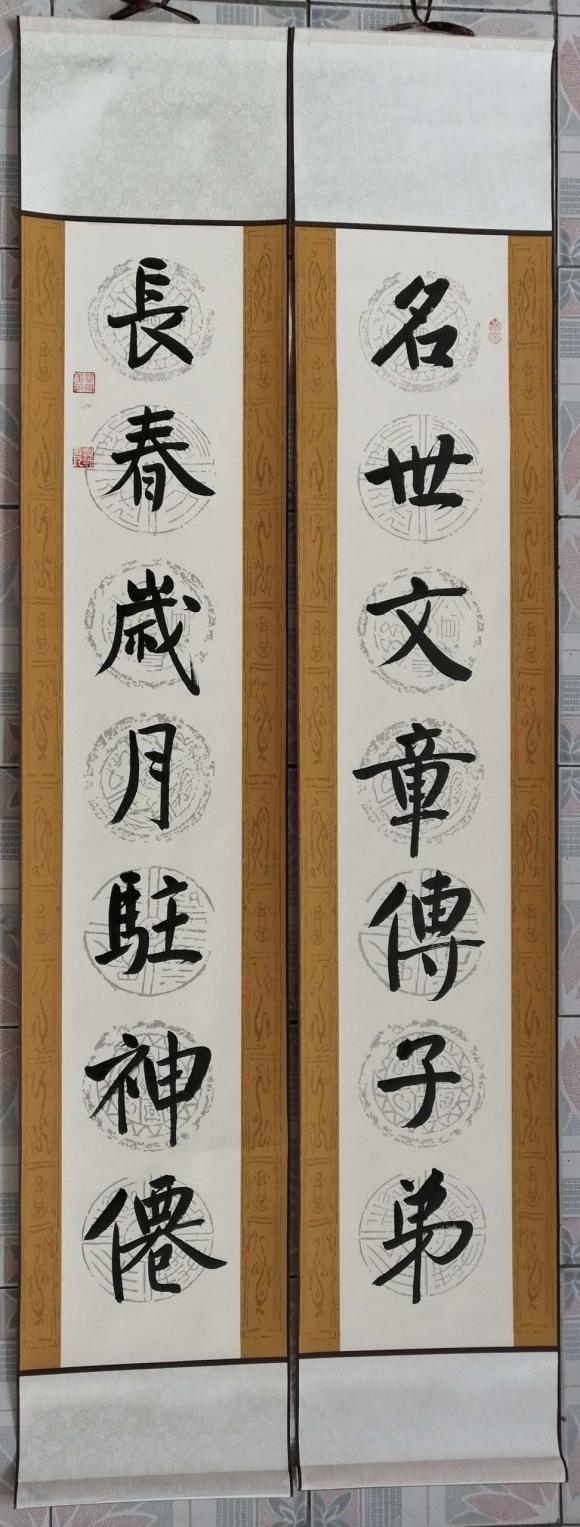 名世文章傳子弟
長春歲月駐神僊